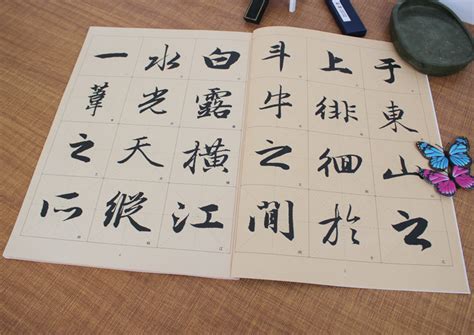 于東山之
上徘徊於
斗牛之間
白露橫江
水光天縱
一葦之所